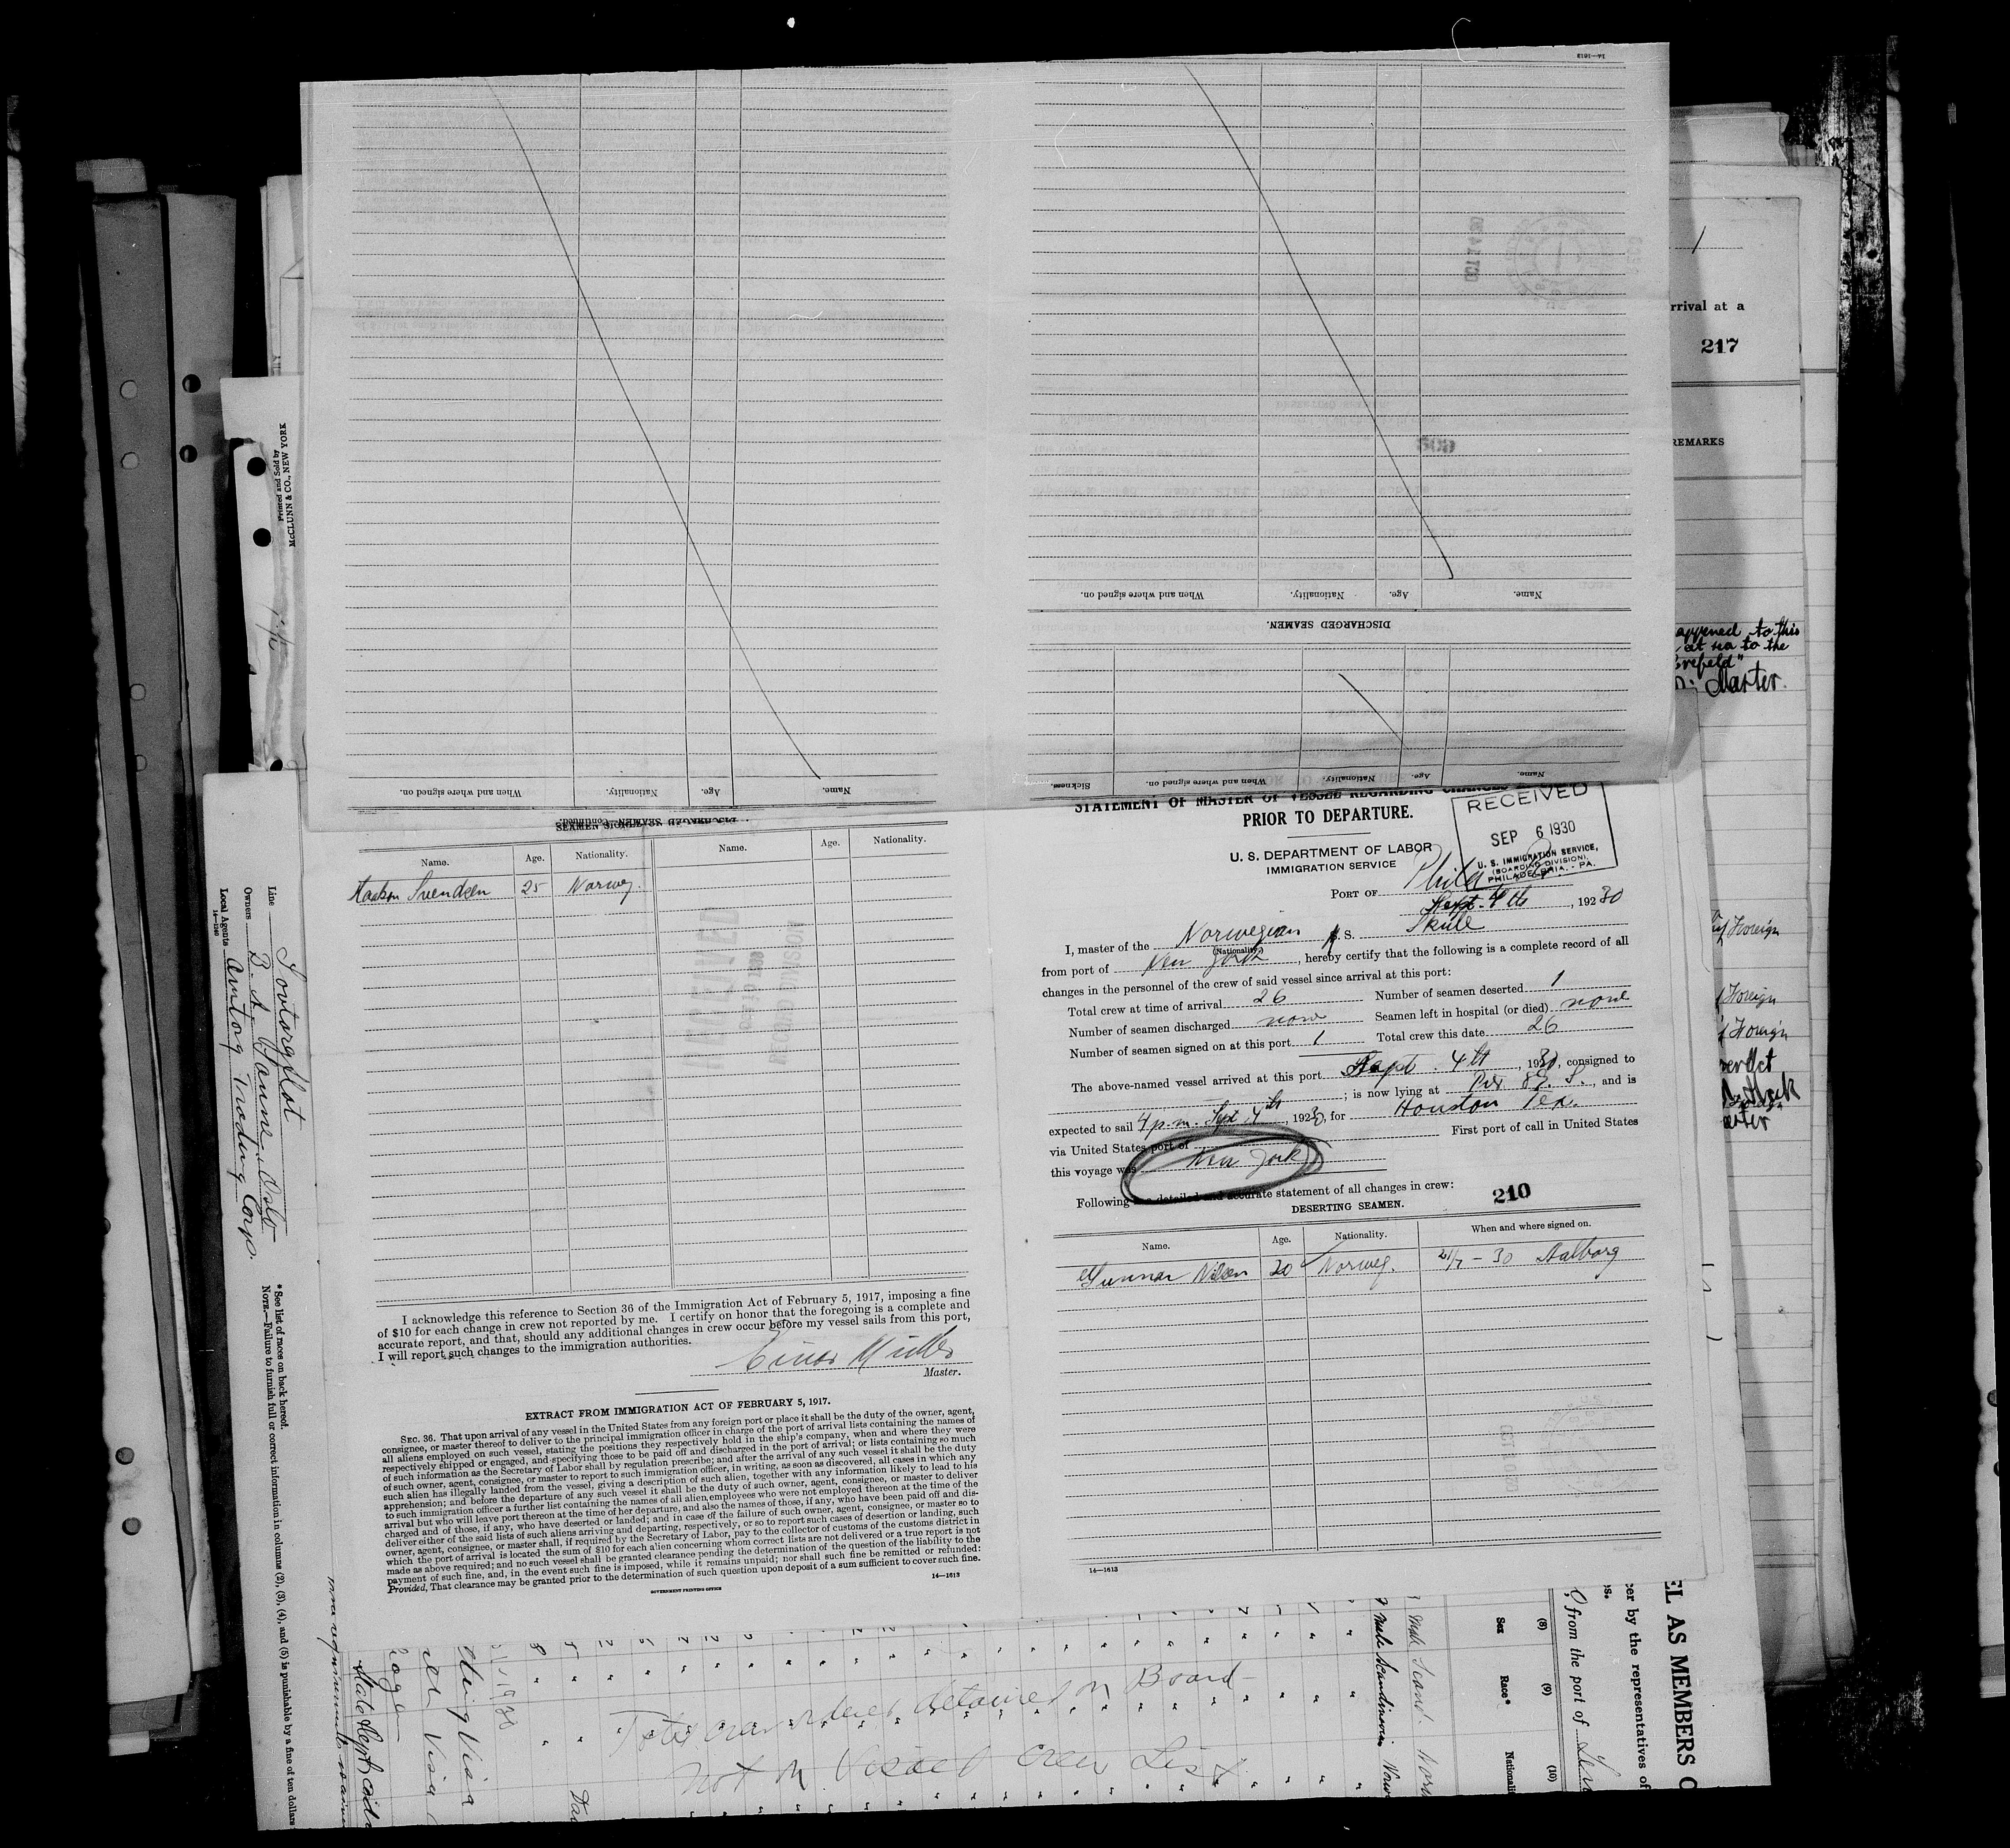 14—1613
OCT 14 30
When and where signed on.
Nationality.
Age.
Name.
DISCHARGED SEAMEN.
Sickness.
When and where signed on.
Nationality.
Age.
Name.
When and where signed on.
Nationality.
Age.
Name.
SEAMEN
Name. Age. Nationality. Name. Age. Nationality.
Haakon Svendsen 25 Norweg.
I acknowledge this reference to Section 36 of the Immigration Act of February 5, 1917, imposing a fine
of $10 for each change in crew not reported by me. I certify on honor that the foregoing is a complete and
accurate report, and that, should any additional changes in crew occur before my vessel sails from this port,
I will report such changes to the immigration authorities.
Einar Müller
Master.
EXTRACT FROM IMMIGRATION ACT OF FEBRUARY 5, 1917.
SEC. 36. That upon arrival of any vessel in the United States from any foreign port or place it shall be the duty of the owner, agent,
consignee, or master thereof to deliver to the principal immigration officer in charge of the port of arrival lists containing the names of
all aliens employed on such vessel, stating the positions they respectively hold in the ship's company, when and where they were
respectively shipped or engaged, and specifying those to be paid off and discharged in the port of arrival; or lists containing so much
of such information as the Secretary of Labor shall by regulation prescribe; and after the arrival of any such vessel it shall be the duty
of such owner, agent, consignee, or master to report to such immigration officer, in writing, as soon as discovered, all cases in which any
such alien has illegally landed from the vessel, giving a description of such alien, together with any information likely to lead to his
apprehension; and before the departure of any such vessel it shall be the duty of such owner, agent, consignee, or master to deliver
to such immigration officer a further list containing the names of all alien employees who were not employed thereon at the time of the
arrival but who will leave port thereon at the time of her departure, and also the names of those, if any, who have been paid off and dis-
charged and of those, if any, who have deserted or landed; and in case of the failure of such owner, agent, consignee, or master so to
deliver either of the said lists of such aliens arriving and departing, respectively, or so to report such cases of desertion or landing, such
owner, agent, consignee, or master shall, if required by the Secretary of Labor, pay to the collector of customs of the customs district in
which the port of arrival is located the sum of $10 for each alien concerning whom correct lists are not delivered or a true report is not
made as above required; and no such vessel shall be granted clearance pending the determination of the question of the liability to the
payment of such fine, and, in the event such fine is imposed, while it remains unpaid; nor shall such fine be remitted or refunded:
Provided, That clearance may be granted prior to the determination of such question upon deposit of a sum sufficient to cover such fine.
GOVERNMENT PRINTING OFFICE
14—1613
STATEMENT OF MASTER OF VESSEL REGARDING CHANGES
PRIOR TO DEPARTURE.
RECEIVED
SEP 6 1930
U. S. IMMIGRATION SERVICE,
(BOARDING DIVISION),
PHILADELPHIA, - PA.
U. S. DEPARTMENT OF LABOR
IMMIGRATION SERVICE
PORT OF Phila
Sept. 4th, 1930
I, master of the Norwegian S. S. Skule
(Nationality)
from port of New York, hereby certify that the following is a complete record of all
changes in the personnel of the crew of said vessel since arrival at this port:
Total crew at time of arrival 26 Number of seamen deserted 1
Number of seamen discharged none Seamen left in hospital (or died) none
Number of seamen signed on at this port 1 Total crew this date 26
The above-named vessel arrived at this port Sept. 4th, 1930, consigned to
; is now lying at Pier 82. S., and is
expected to sail 4 p.m. Sept. 4th, 1930, for Houston Tex.
via United States port of First port of call in United States
this voyage was New York
Following is a detailed and accurate statement of all changes in crew:
210
DESERTING SEAMEN.
Name. Age. Nationality. When and where signed on.
Gunnar Nilsen 20 Norweg. 21/7 - 30 Aalborg
14—1613
Printed and Sold by
McCLUNN & CO., NEW YORK
Line Sovtorgflot
Owners B. A. Sanne. Oslo
Local Agents Amtorg Trading Corp.
14—1240
* See list of races on back hereof.
NOTE.—Failure to furnish full or correct information in columns (2), (3), (4), and (5) is punishable by a fine of ten dollars
rrival at a
217
REMARKS
appened to this
at sea to the
Master.
Foreign
Foreign
Foreign
EL AS MEMBERS
cer by the representatives of
from the port of
(8) (9) (10)
Sex Race*
Male Scand.
Male Scandinavian
detained on Board
Not on Vessel Crew List